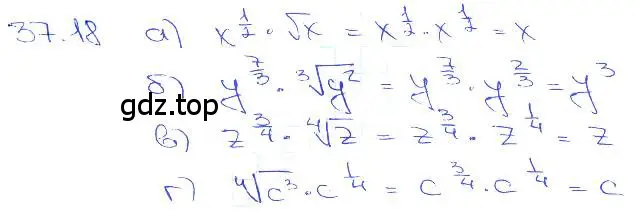 37.18 а) x^{1/2} · √x = x^{1/2} · x^{1/2} = x
б) y^{7/3} · ∛y² = y^{7/3} · y^{2/3} = y³
gdz.top
в) z^{3/4} · ∜z = z^{3/4} · z^{1/4} = z
г) ∜c³ · c^{1/4} = c^{3/4} · c^{1/4} = c